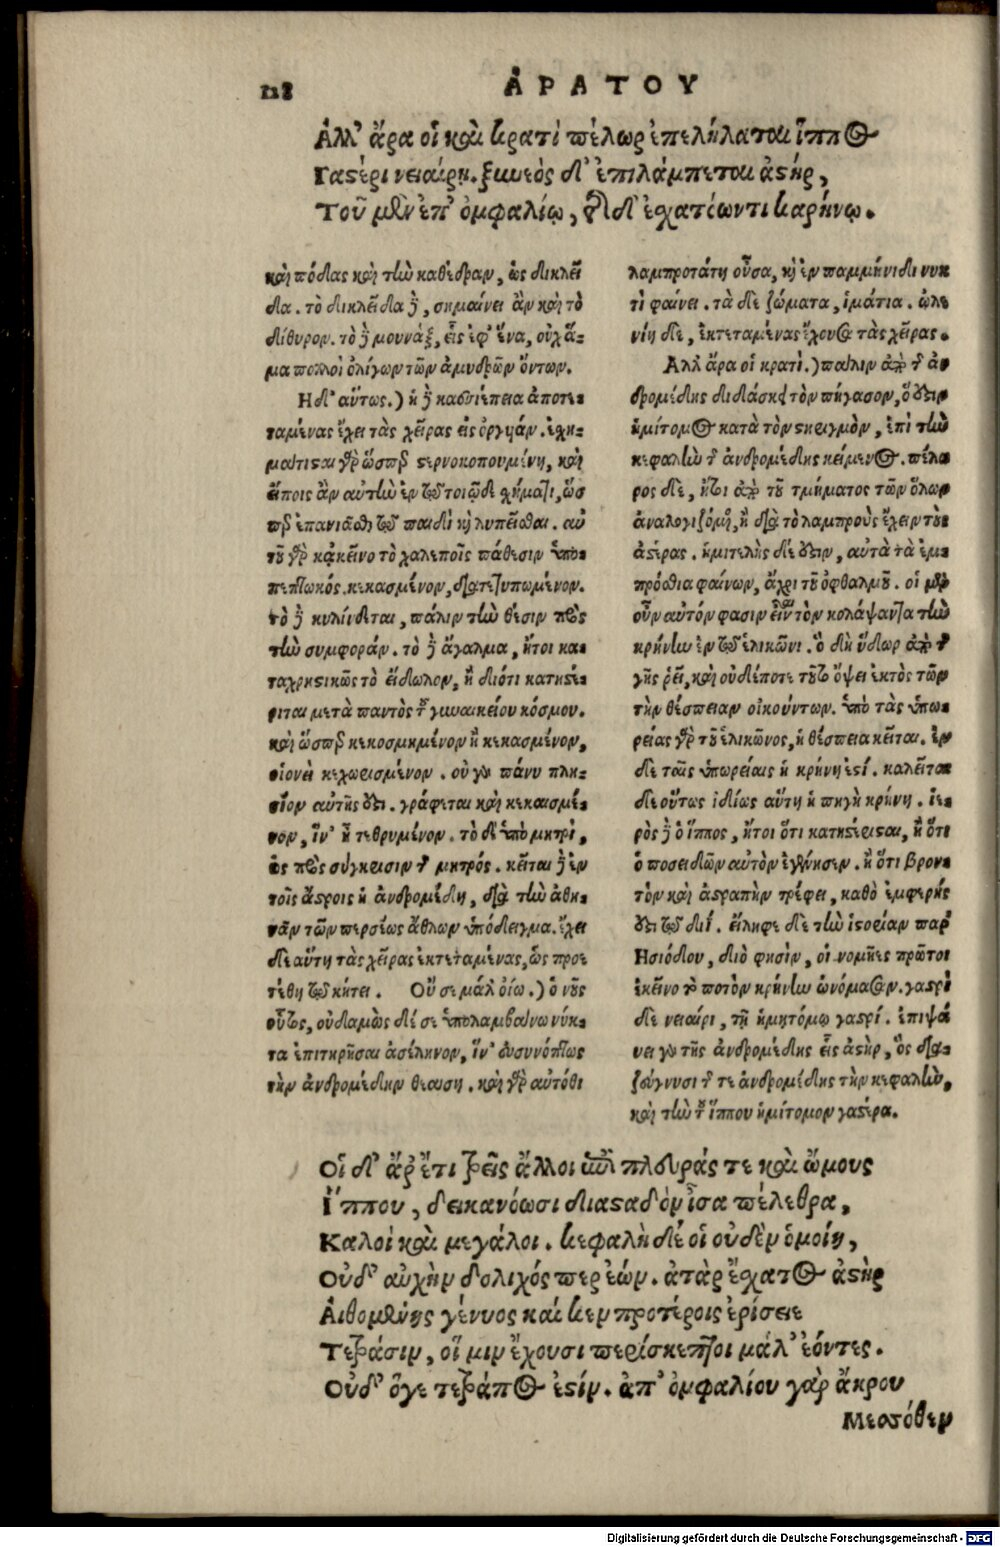 118 ἈΡΑΤΟΥ
Ἀλλ' ἄρα οἱ καὶ κρατὶ πέλωρ ἐπελήλαται ἵππος
Γαστέρι νειαίρῃ. ξυνὸς δ' ἐπιλάμπεται ἀστήρ,
Τοῦ μὲν ἐπ' ὀμφαλίῳ, τῆς δ' ἐσχατόωντι καρήνῳ.
καὶ πόδας καὶ τὴν καθέδραν, ὡς δικλεῖ
δα. τὸ δικλεῖδα δὲ, σημαίνει ἂν καὶ τὸ
δίθυρον. τὸ δὲ μουνὰξ, εἷς ἐφ' ἕνα, οὐχ ἅ-
μα πολλοὶ ὀλίγων τῶν ἀμυδρῶν ὄντων.
Ἡ δ' αὕτως.) ἡ δὲ κασσιέπεια ἀποτε-
ταμένας ἔχει τὰς χεῖρας εἰς ὀργυιάν. ἐσχη-
μάτισαι γὰρ ὥσπερ στερνοκοπουμένη, καὶ
εἴποις ἂν αὐτὴν ἐν τῷ τοιῷδε σχήματι, ὥσ
περ ἐπανιᾶσθαι τῷ παιδὶ καὶ λυπεῖσθαι. αὐ
τοῦ γὰρ κἀκεῖνο τὸ χαλεποῖς πάθεσιν ὑπο-
πεπτωκός. κεκασμένον, διατετυπωμένον.
τὸ δὲ κυλίνδεται, πάλιν τὴν θέσιν πρὸς
τὴν συμφοράν. τὸ δὲ ἄγαλμα, ἤτοι κα-
ταχρηστικῶς τὸ εἴδωλον, ἢ διότι κατηστέ-
ρισται μετὰ παντὸς τοῦ γυναικείου κόσμου.
καὶ ὥσπερ κεκοσμημένον ἢ κεκασμένον,
οἱονεὶ κεχωρισμένον. οὐ γὰρ πάνυ πλη-
σίον αὐτῆς ἐστι. γράφεται καὶ κεκαυσμέ-
νον, ἵν' ᾖ τεθρυμένον. τὸ δ' ὑπὸ μητρὶ,
ὡς πρὸς σύγκρισιν τῆς μητρός. κεῖται δὲ ἐν
τοῖς ἄστροις ἡ ἀνδρομέδη, διὰ τὴν ἀθη-
νᾶν τῶν περσέως ἄθλων ὑπόδειγμα. ἔχει
δὲ αὕτη τὰς χεῖρας ἐκτεταμένας, ὡς προε
τέθη τῷ κήτει. Οὔ σε μάλ' ὀΐω.) ὁ νοῦς
οὗτος, οὐδαμῶς δέ σε ὑπολαμβάνω νύκ-
τα ἐπιτηρῆσαι ἀσέληνον, ἵν' εὐσυνόπτως
τὴν ἀνδρομέδην θεάσῃ. καὶ γὰρ αὐτόθι
λαμπροτάτη οὖσα, καὶ ἐν παμμήνιδι νυκ
τὶ φαίνει. τὰ δὲ ζώματα, ἱμάτια. ὠλε
νίη δὲ, ἐκτεταμένας ἔχουσα τὰς χεῖρας.
Ἀλλ' ἄρα οἱ κρατὶ.) πάλιν ἀπὸ τῆς ἀν
δρομέδης διδάσκει τὸν πήγασον, ὅ ἐστιν
ἡμίτομος κατὰ τὸν σκωιγμὸν, ἐπὶ τὴν
κεφαλὴν τῆς ἀνδρομέδης κείμενος. πέλω
ρος δὲ, ἤτοι ἀπὸ τοῦ τμήματος τῶν ὅλων
ἀναλογιζόμενος, ἢ διὰ τὸ λαμπροὺς ἔχειν τοὺς
ἀστέρας. ἡμιτελὴς δέ ἐστιν, αὐτὰ τὰ ἐμ-
πρόσθια φαίνων, ἄχρι τοῦ ὀμφαλοῦ. οἱ μὲν
οὖν αὐτόν φασιν εἶναι τὸν κολάψαντα τὴν
κρήνην ἐν τῷ ἑλικῶνι. ὃ δὴ ὕδωρ ἀπὸ τῆς
γῆς ῥεῖ, καὶ οὐδέποτε τοῦτο ὄψει ἐκτὸς τῶν
τὴν θέσπειαν οἰκούντων. ὑπὸ τὰς ὑπω-
ρείας γὰρ τοῦ ἑλικῶνος, ἡ θέσπεια κεῖται. ἐν
δὲ ταῖς ὑπωρείαις ἡ κρήνη ἐστί. καλεῖται
δὲ οὕτως ἰδίως αὕτη ἡ πηγὴ κρήνη. ἱε-
ρὸς δὲ ὁ ἵππος, ἤτοι ὅτι κατηστέρισται, ἢ ὅτι
ὁ ποσειδῶν αὐτὸν ἐγέννησεν. ἢ ὅτι βρον-
τὴν καὶ ἀστραπὴν τρέφει, καθὸ ἐμφερής
ἐστι τῷ διΐ. εἴληφε δὲ τὴν ἱστορίαν παρ'
Ἡσιόδου, διὸ φησὶν, οἱ νομῆες πρῶτοι
ἐκεῖνο τὸ ποτὸν κρήνην ὠνόμασαν. γαστρὶ
δὲ νειαίρῃ, τῇ ἡμητόμῳ γαστρί. ἐπιψά
νει γὰρ τῆς ἀνδρομέδης εἷς ἀστὴρ, ὃς δια-
ζεύγνυσι τῆς τε ἀνδρομέδης τὴν κεφαλὴν,
καὶ τὴν τοῦ ἵππου ἡμίτομον γαστέρα.
Οἱ δ' ἄρ' ἔτι τρεῖς ἄλλοι ἐπὶ πλευράς τε καὶ ὤμους
Ἵππου, δεικανόωσι διασταδὸν ἶσα πέλεθρα,
Καλοὶ καὶ μεγάλοι. κεφαλὴ δέ οἱ οὐδὲν ὁμοίη,
Οὐδ' αὐχὴν δολιχός περ ἐών. ἀτὰρ ἔσχατος ἀστὴρ
Αἰθομένης γένυος καί κεν προτέροις ἐρίσειε
Τετράσιν, οἵ μιν ἔχουσι περίσκεπτοι μάλ' ἐόντες.
Οὐδ' ὅγε τετράπος ἐστίν. ἀπ' ὀμφαλίου γὰρ ἄκρου
Μεσσόθεν
Digitalisierung gefördert durch die Deutsche Forschungsgemeinschaft - DFG